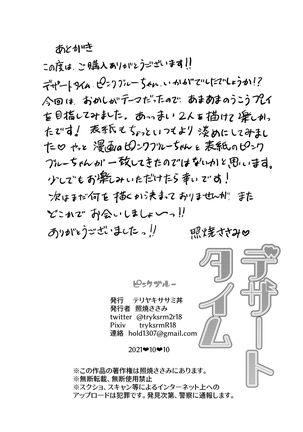 あとがき
この度は、ご購入ありがとうございます!!
デザートタイムピンクブルーちゃん、いかがでしたでしょうか!?
今回は、おかしがテーマだったので、あまあまのうこうプレイ
を目指してみました。あっまい2人を描けて楽しかっ
たです! 表紙もちょっといつもより淡めにしてみまし
た♡ やっと漫画はピンクブルーちゃんと表紙のピンク
ブルーちゃんが一致してきたのではないかと思います。
少しでもお楽しみいただけたら幸いです!
次はまだ何を描くか決まっておりませんが、また
どこかでお会いしましょ〜っ!!
ありがとうございましたっ!!
照焼ささみ♡
デザート
タイム
ピンクブルー
発行 テリヤキササミ丼
発行者 照焼ささみ
twitter @tryksrm2r18
Pixiv tryksrmR18
連絡 holo1307@gmail.com
2021♥10♥10
※この作品の著作権は照焼ささみにあります。
※無断転載、無断使用禁止
※スクショ、スキャン等によるインターネット上への
アップロードは犯罪です。発見次第、警察に通報します。